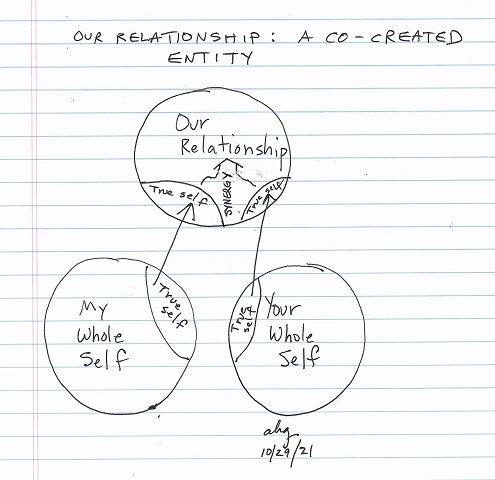 OUR RELATIONSHIP: A CO-CREATED
ENTITY
Our
Relationship
True self
SYNERGY
True self
True
self
My
Whole
Self
True
self
Your
Whole
Self
ahg
10/29/21